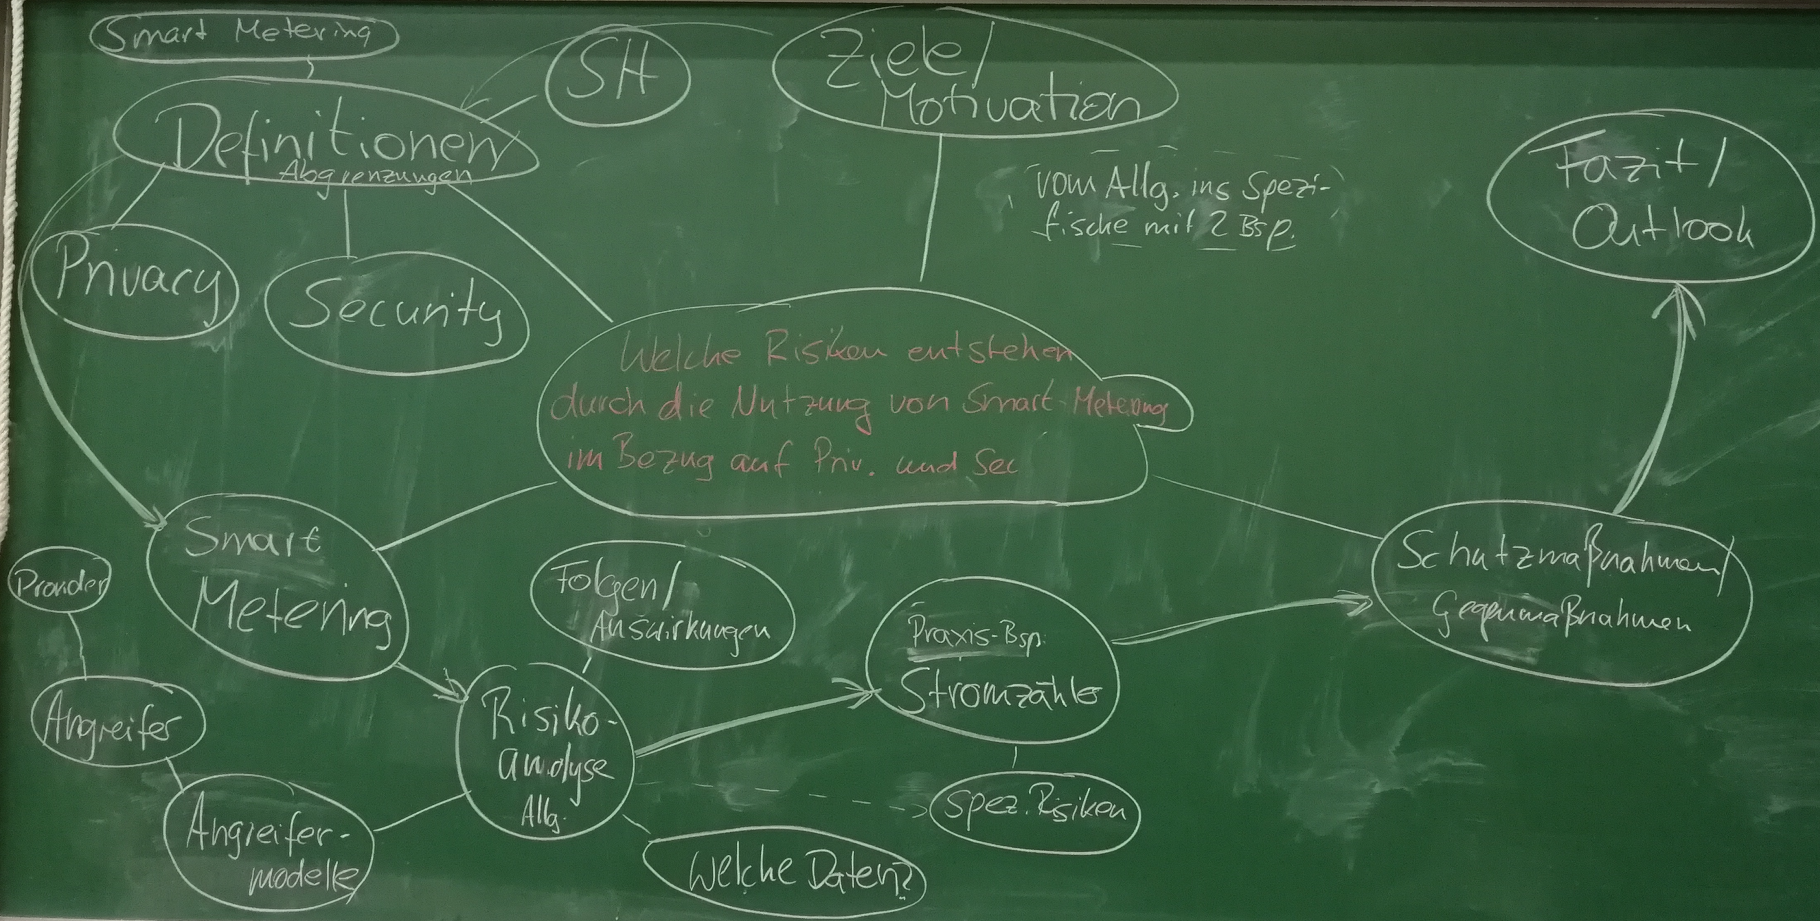 Smart Metering
SH
Ziele/
Motivation
Definitionen
Abgrenzungen
vom Allg. ins Spezi-
fische mit 2 Bsp.
Fazit/
Outlook
Privacy
Security
Welche Risiken entstehen
durch die Nutzung von Smart-Metering
im Bezug auf Priv. und Sec
Smart
Metering
Provider
Folgen/
Auswirkungen
Praxis-Bsp.
Stromzähler
Schutzmaßnahmen/
Gegenmaßnahmen
Angreifer
Risiko-
analyse
Allg.
Angreifer-
modelle
spez. Risiken
Welche Daten?